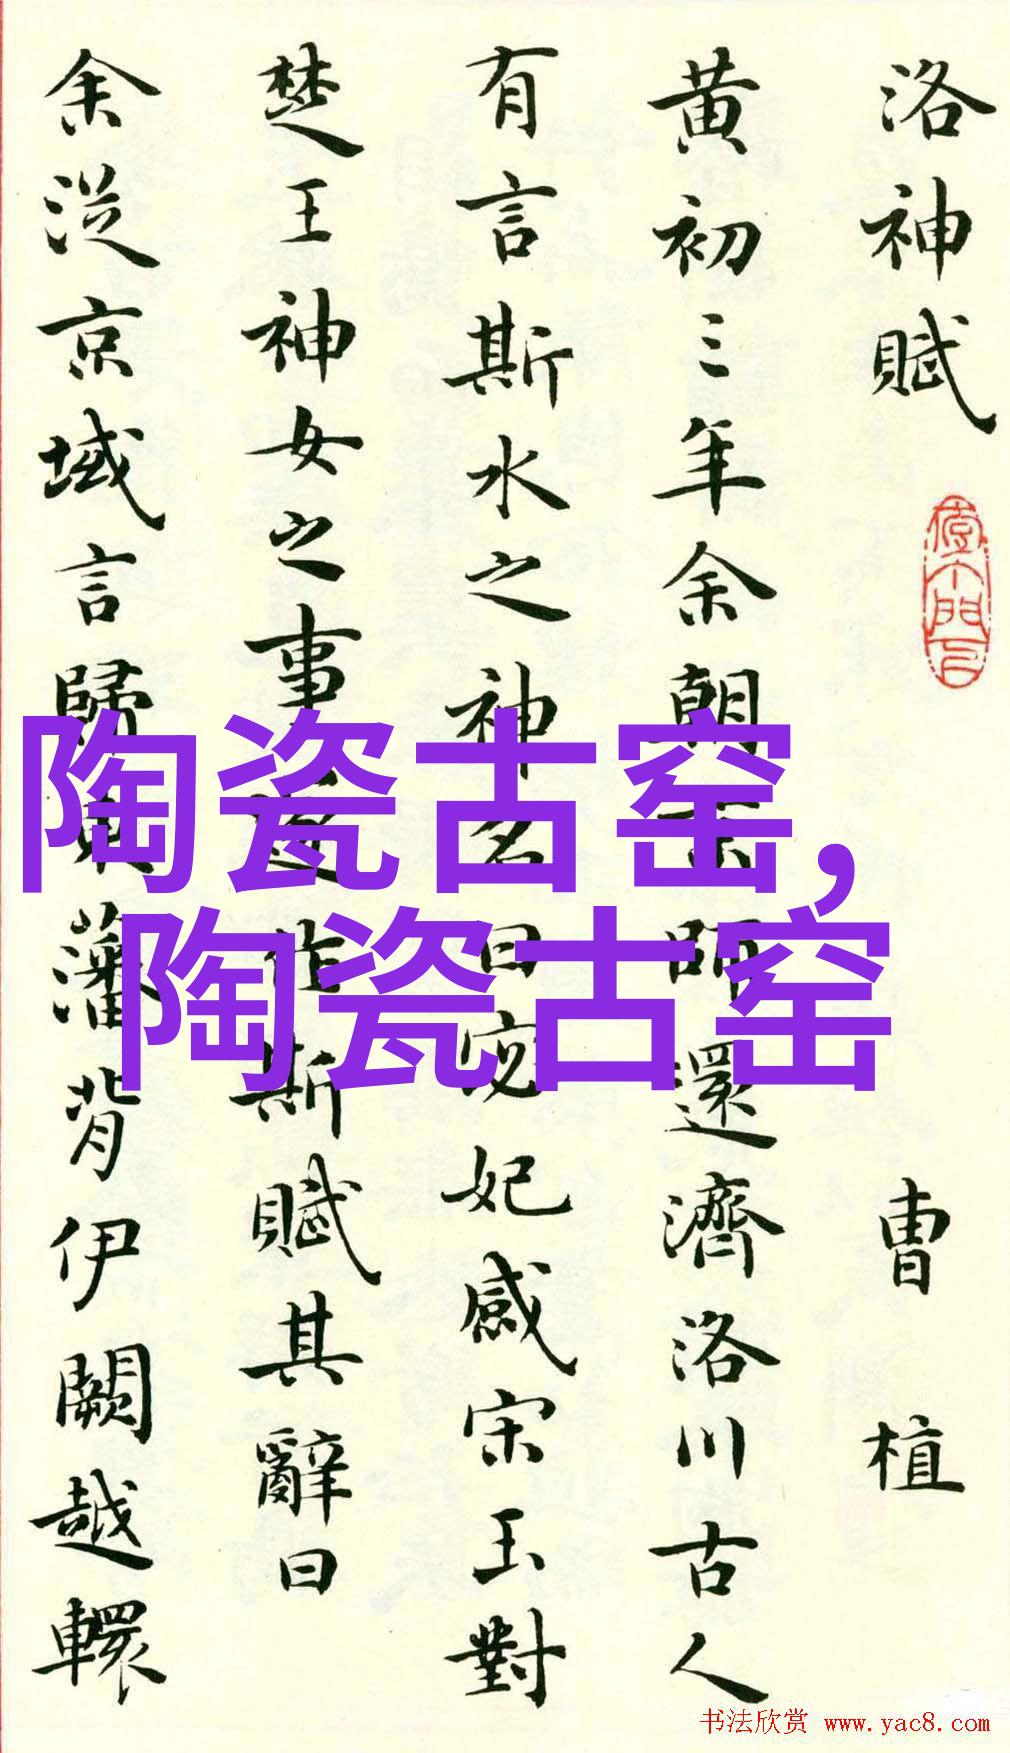 洛神賦
曹植
黄初三年余朝京師還濟洛川古人
有言斯水之神名曰宓妃感宋玉對
楚王神女之事遂作斯賦其辭曰
余従京域言歸東藩背伊闕越轘
陶瓷古窑,
陶瓷古窑
书法欣赏 www.yac8.com